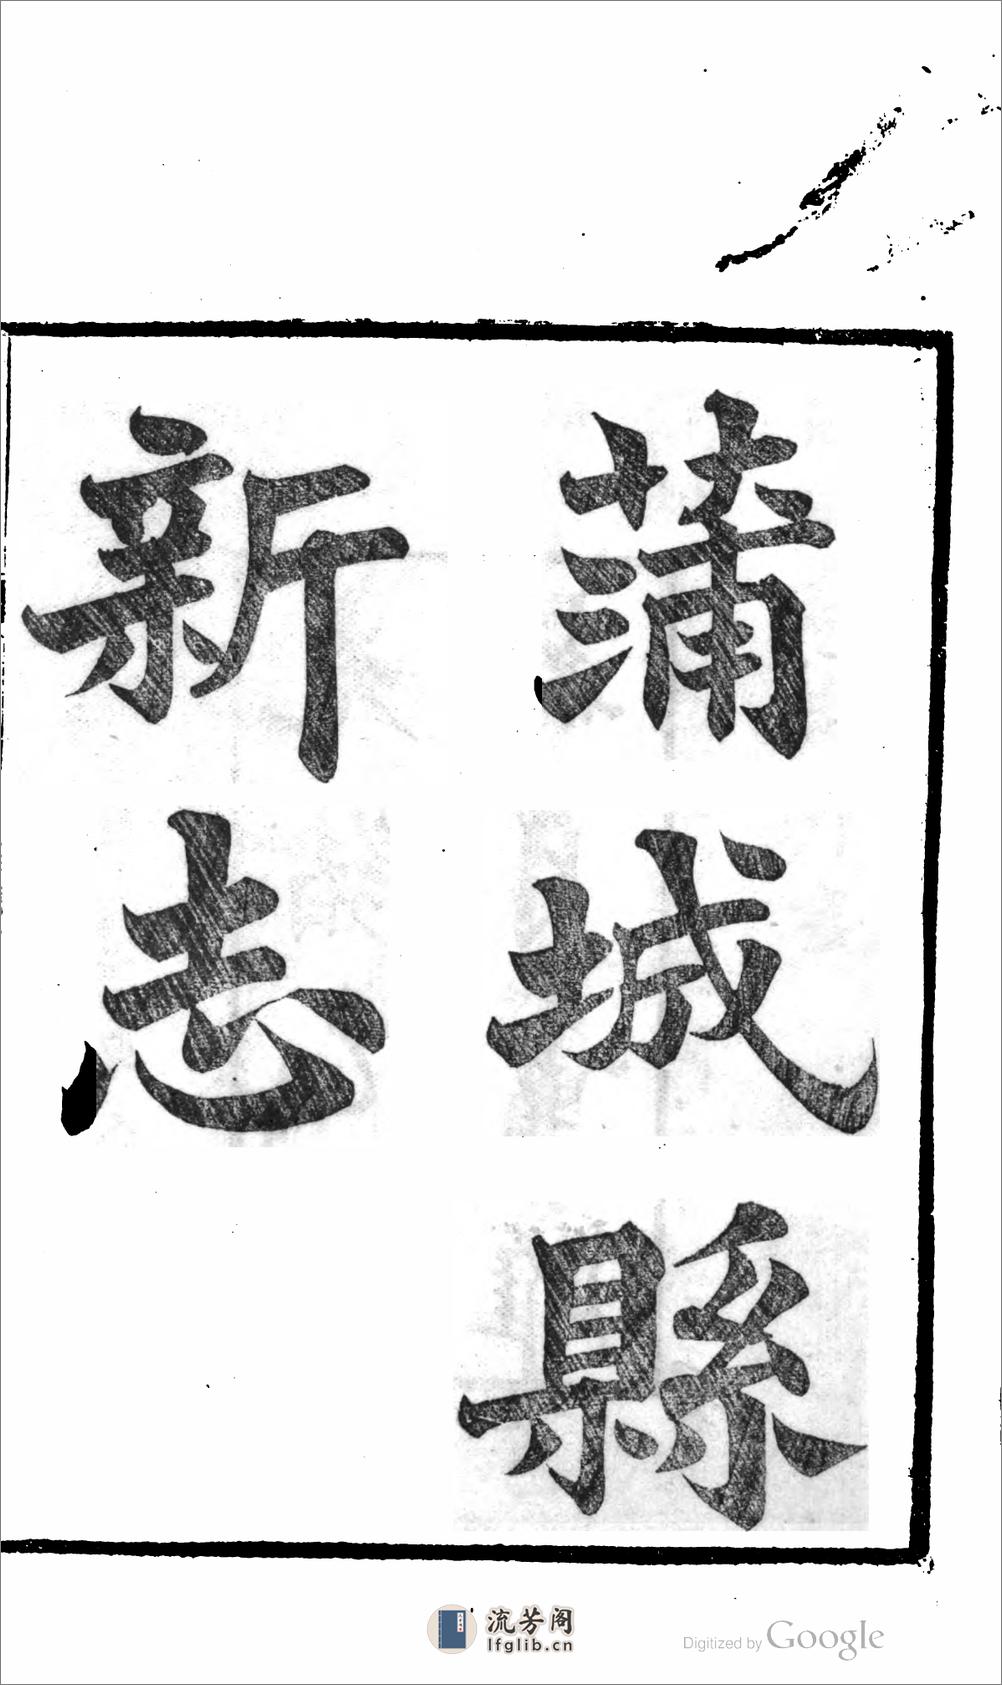 蒲城縣
新志
流芳阁
lfglib.cn
Digitized by Google